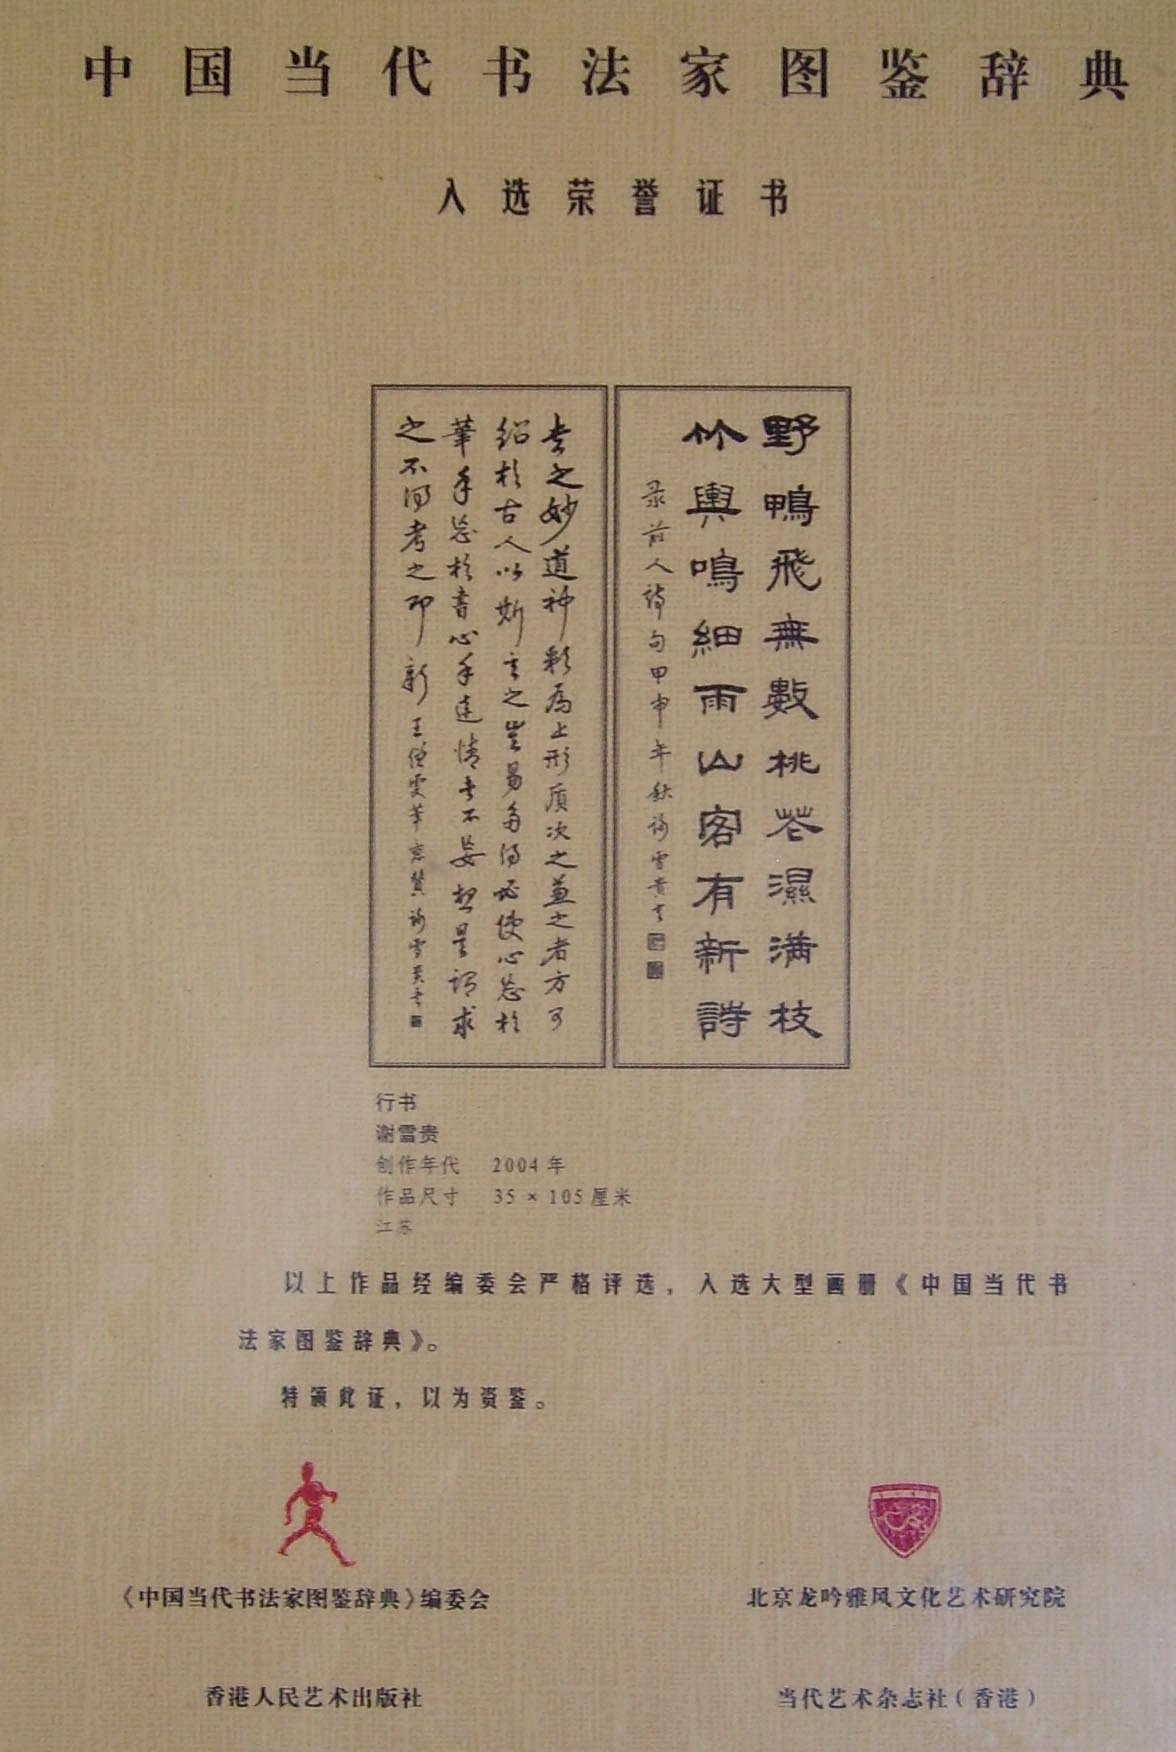 中国当代书法家图鉴辞典
入选荣誉证书
野鴨飛無數桃花濕滿枝
竹輿鳴細雨山客有新詩
录前人詩句甲申年秋謝雪貴書
書之妙道神彩為上形质次之兼之者方可
紹於古人以斯言之豈易多得必使心忘於
筆手忘於書心手達情書不妄想是謂求
之不得考之即彰王僧虔筆意贊謝雪貴書
行书
谢雪贵
创作年代 2004年
作品尺寸 35×105厘米
江苏
以上作品经编委会严格评选，入选大型画册《中国当代书
法家图鉴辞典》。
特颁此证，以为资鉴。
《中国当代书法家图鉴辞典》编委会
北京龙吟雅风文化艺术研究院
香港人民艺术出版社
当代艺术杂志社（香港）